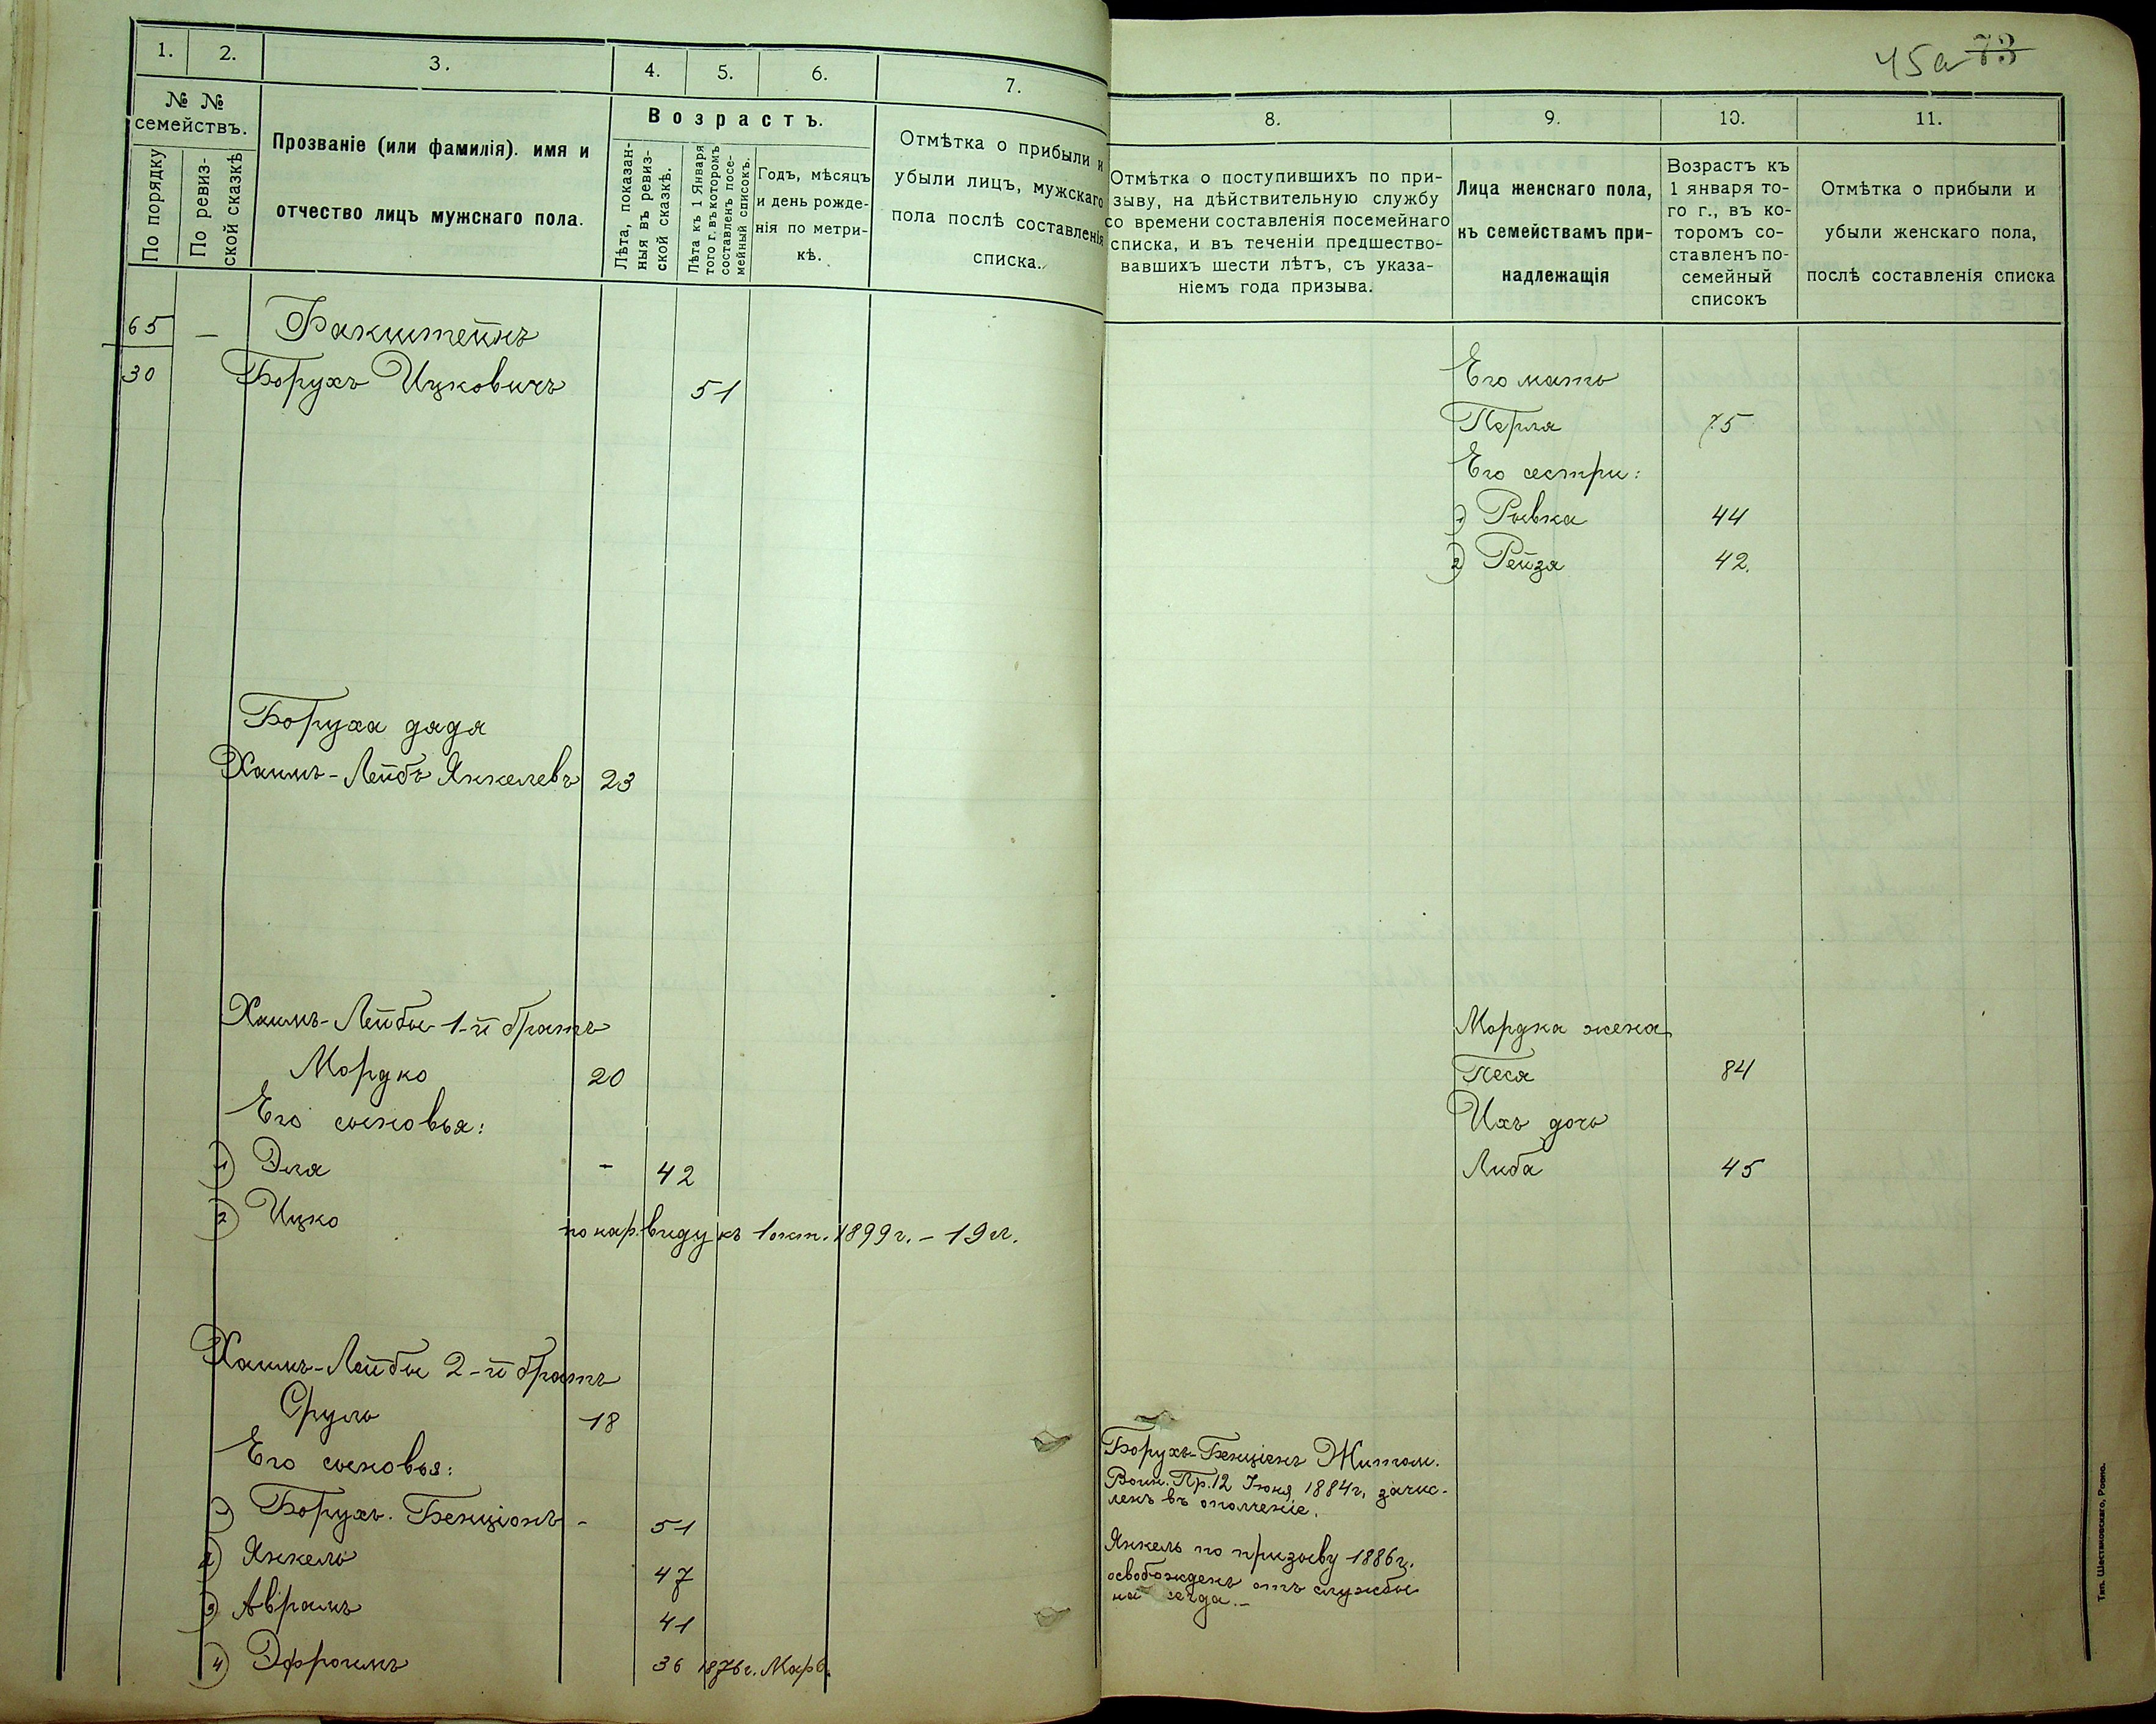 45а 73
1. 2. 3. 4. 5. 6. 7.
№ № семействъ.
По порядку
По ревиз-
ской сказкѣ
Прозваніе (или фамилія). имя и
отчество лицъ мужскаго пола.
Возрастъ.
Лѣта, показан-
ныя въ ревиз-
ской сказкѣ.
Лѣта къ 1 Января
того г. въ которомъ
составленъ посе-
мейный списокъ.
Годъ, мѣсяцъ
и день рожде-
нія по метри-
кѣ.
Отмѣтка о прибыли и
убыли лицъ, мужскаго
пола послѣ составленія
списка.
65 — Факштейнъ
30 Борухъ Ицковичъ 51
Боруха дядя
Хаимъ-Лейбъ Янкелевъ 23
Хаимъ-Лейбы 1-й братъ
Мордко 20
Его сыновья:
1) Эля - 42
2) Ицко по нар. виду къ 1 окт. 1899 г. - 19 л.
Хаимъ-Лейбы 2-й братъ
Сруль 18
Его сыновья:
1) Борухъ-Бенціонъ - 51
2) Янкель 47
3) Аврамъ 41
4) Эфроимъ 36 1876 г. Мар 6.
8. 9. 10. 11.
Отмѣтка о поступившихъ по при-
зыву, на дѣйствительную службу
со времени составленія посемейнаго
списка, и въ теченіи предшество-
вавшихъ шести лѣтъ, съ указа-
ніемъ года призыва.
Лица женскаго пола,
къ семействамъ при-
надлежащія
Возрастъ къ
1 января то-
го г., въ ко-
торомъ со-
ставленъ по-
семейный
списокъ
Отмѣтка о прибыли и
убыли женскаго пола,
послѣ составленія списка
Его мать
Перля 75
Его сестри:
1) Рывка 44
2) Рейза 42.
Мордка жена
Песя 84
Ихъ дочь
Либа 45
Борухъ-Бенціонъ Житом.
Воин. Пр. 12 Іюня 1884 г. зачис-
ленъ въ ополченіе.
Янкель по призыву 1886 г.
освобожденъ отъ службы
на сегда.-
Тип. Шестаковскаго, Ровно.